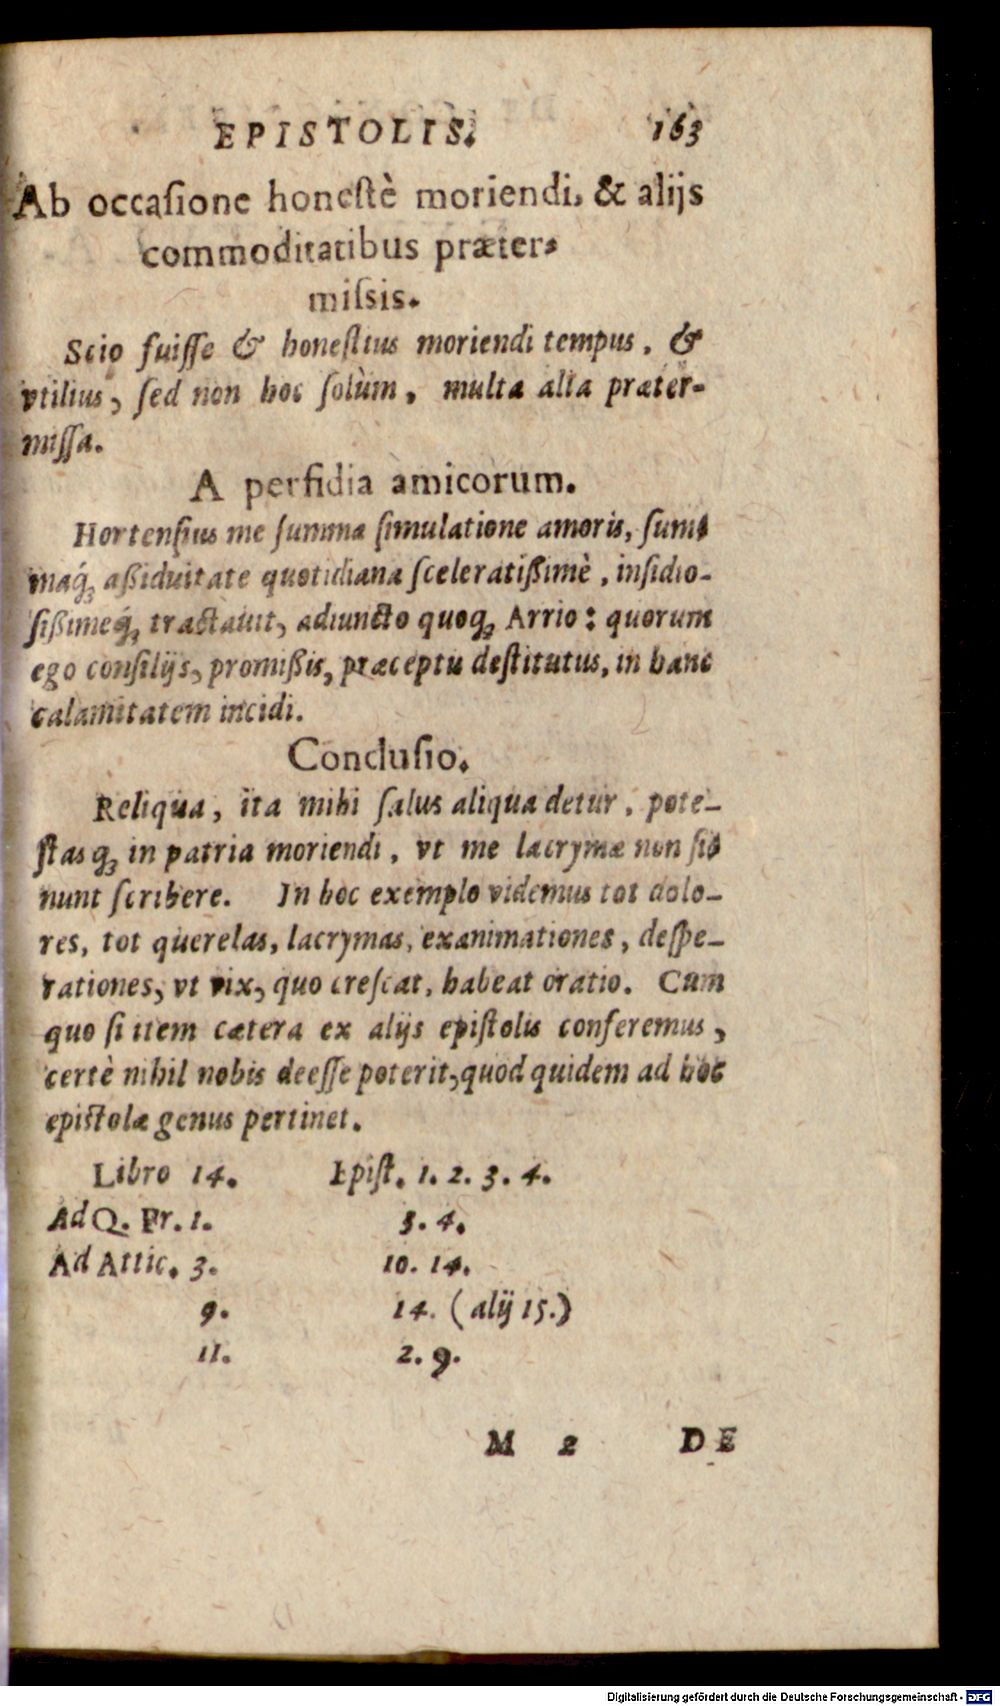 EPISTOLIS. 163
Ab occasione honestè moriendi, & alijs
commoditatibus præter-
missis.
Scio fuisse & honestius moriendi tempus, &
vtilius, sed non hoc solùm, multa alia præter-
missa.
A perfidia amicorum.
Hortensius me summa simulatione amoris, sum-
maq́; aßiduitate quotidiana sceleratißimè, insidio-
sißimeq́; tractauit, adiuncto quoq; Arrio: quorum
ego consilijs, promißis, præceptu destitutus, in hanc
calamitatem incidi.
Conclusio.
Reliqua, ita mihi salus aliqua detur, pote-
stasq; in patria moriendi, vt me lacrymæ non si-
nunt scribere. In hoc exemplo videmus tot dolo-
res, tot querelas, lacrymas, exanimationes, despe-
rationes, vt vix, quo crescat, habeat oratio. Cum
quo si item cætera ex alijs epistolis conferemus,
certè nihil nobis deesse poterit, quod quidem ad hoc
epistolæ genus pertinet.
Libro 14. Epist. 1. 2. 3. 4.
Ad Q. Fr. 1. 3. 4.
Ad Attic. 3. 10. 14.
9. 14. (alij 15.)
11. 2. 9.
M 2 DE
Digitalisierung gefördert durch die Deutsche Forschungsgemeinschaft - DFG